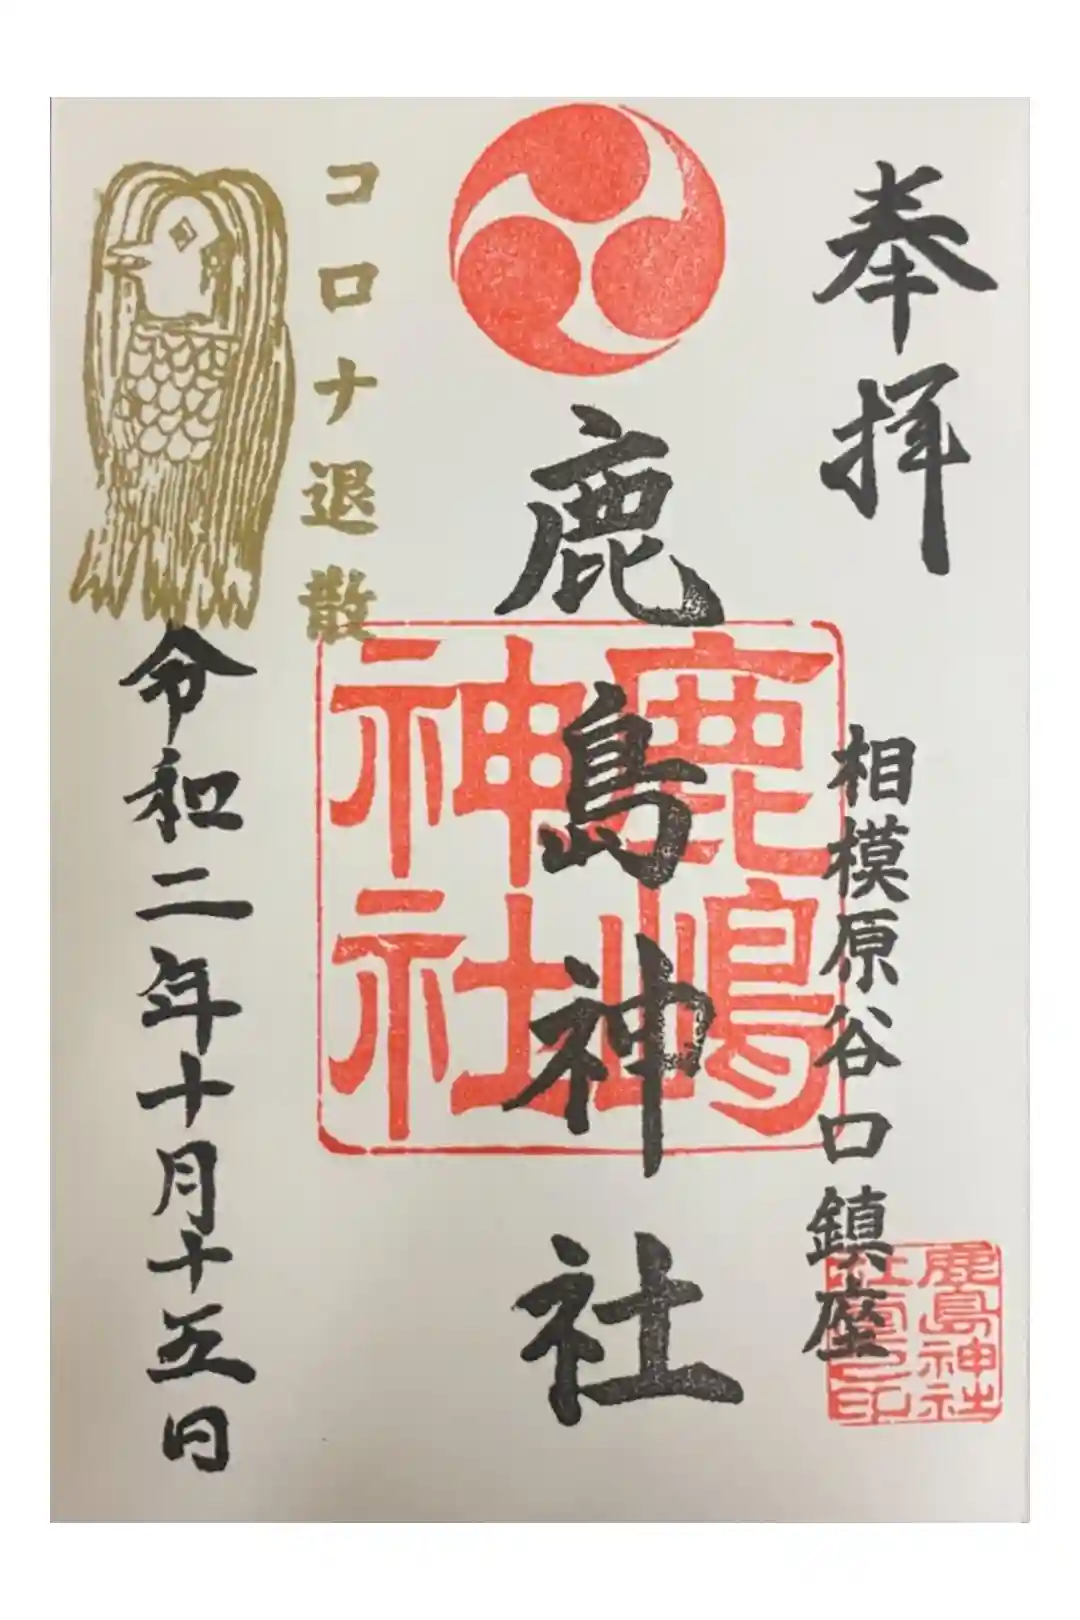 奉拝
相模原谷口鎮座
鹿島神社
鹿島神社
鹿嶋
神社
コロナ退散
令和二年十月十五日